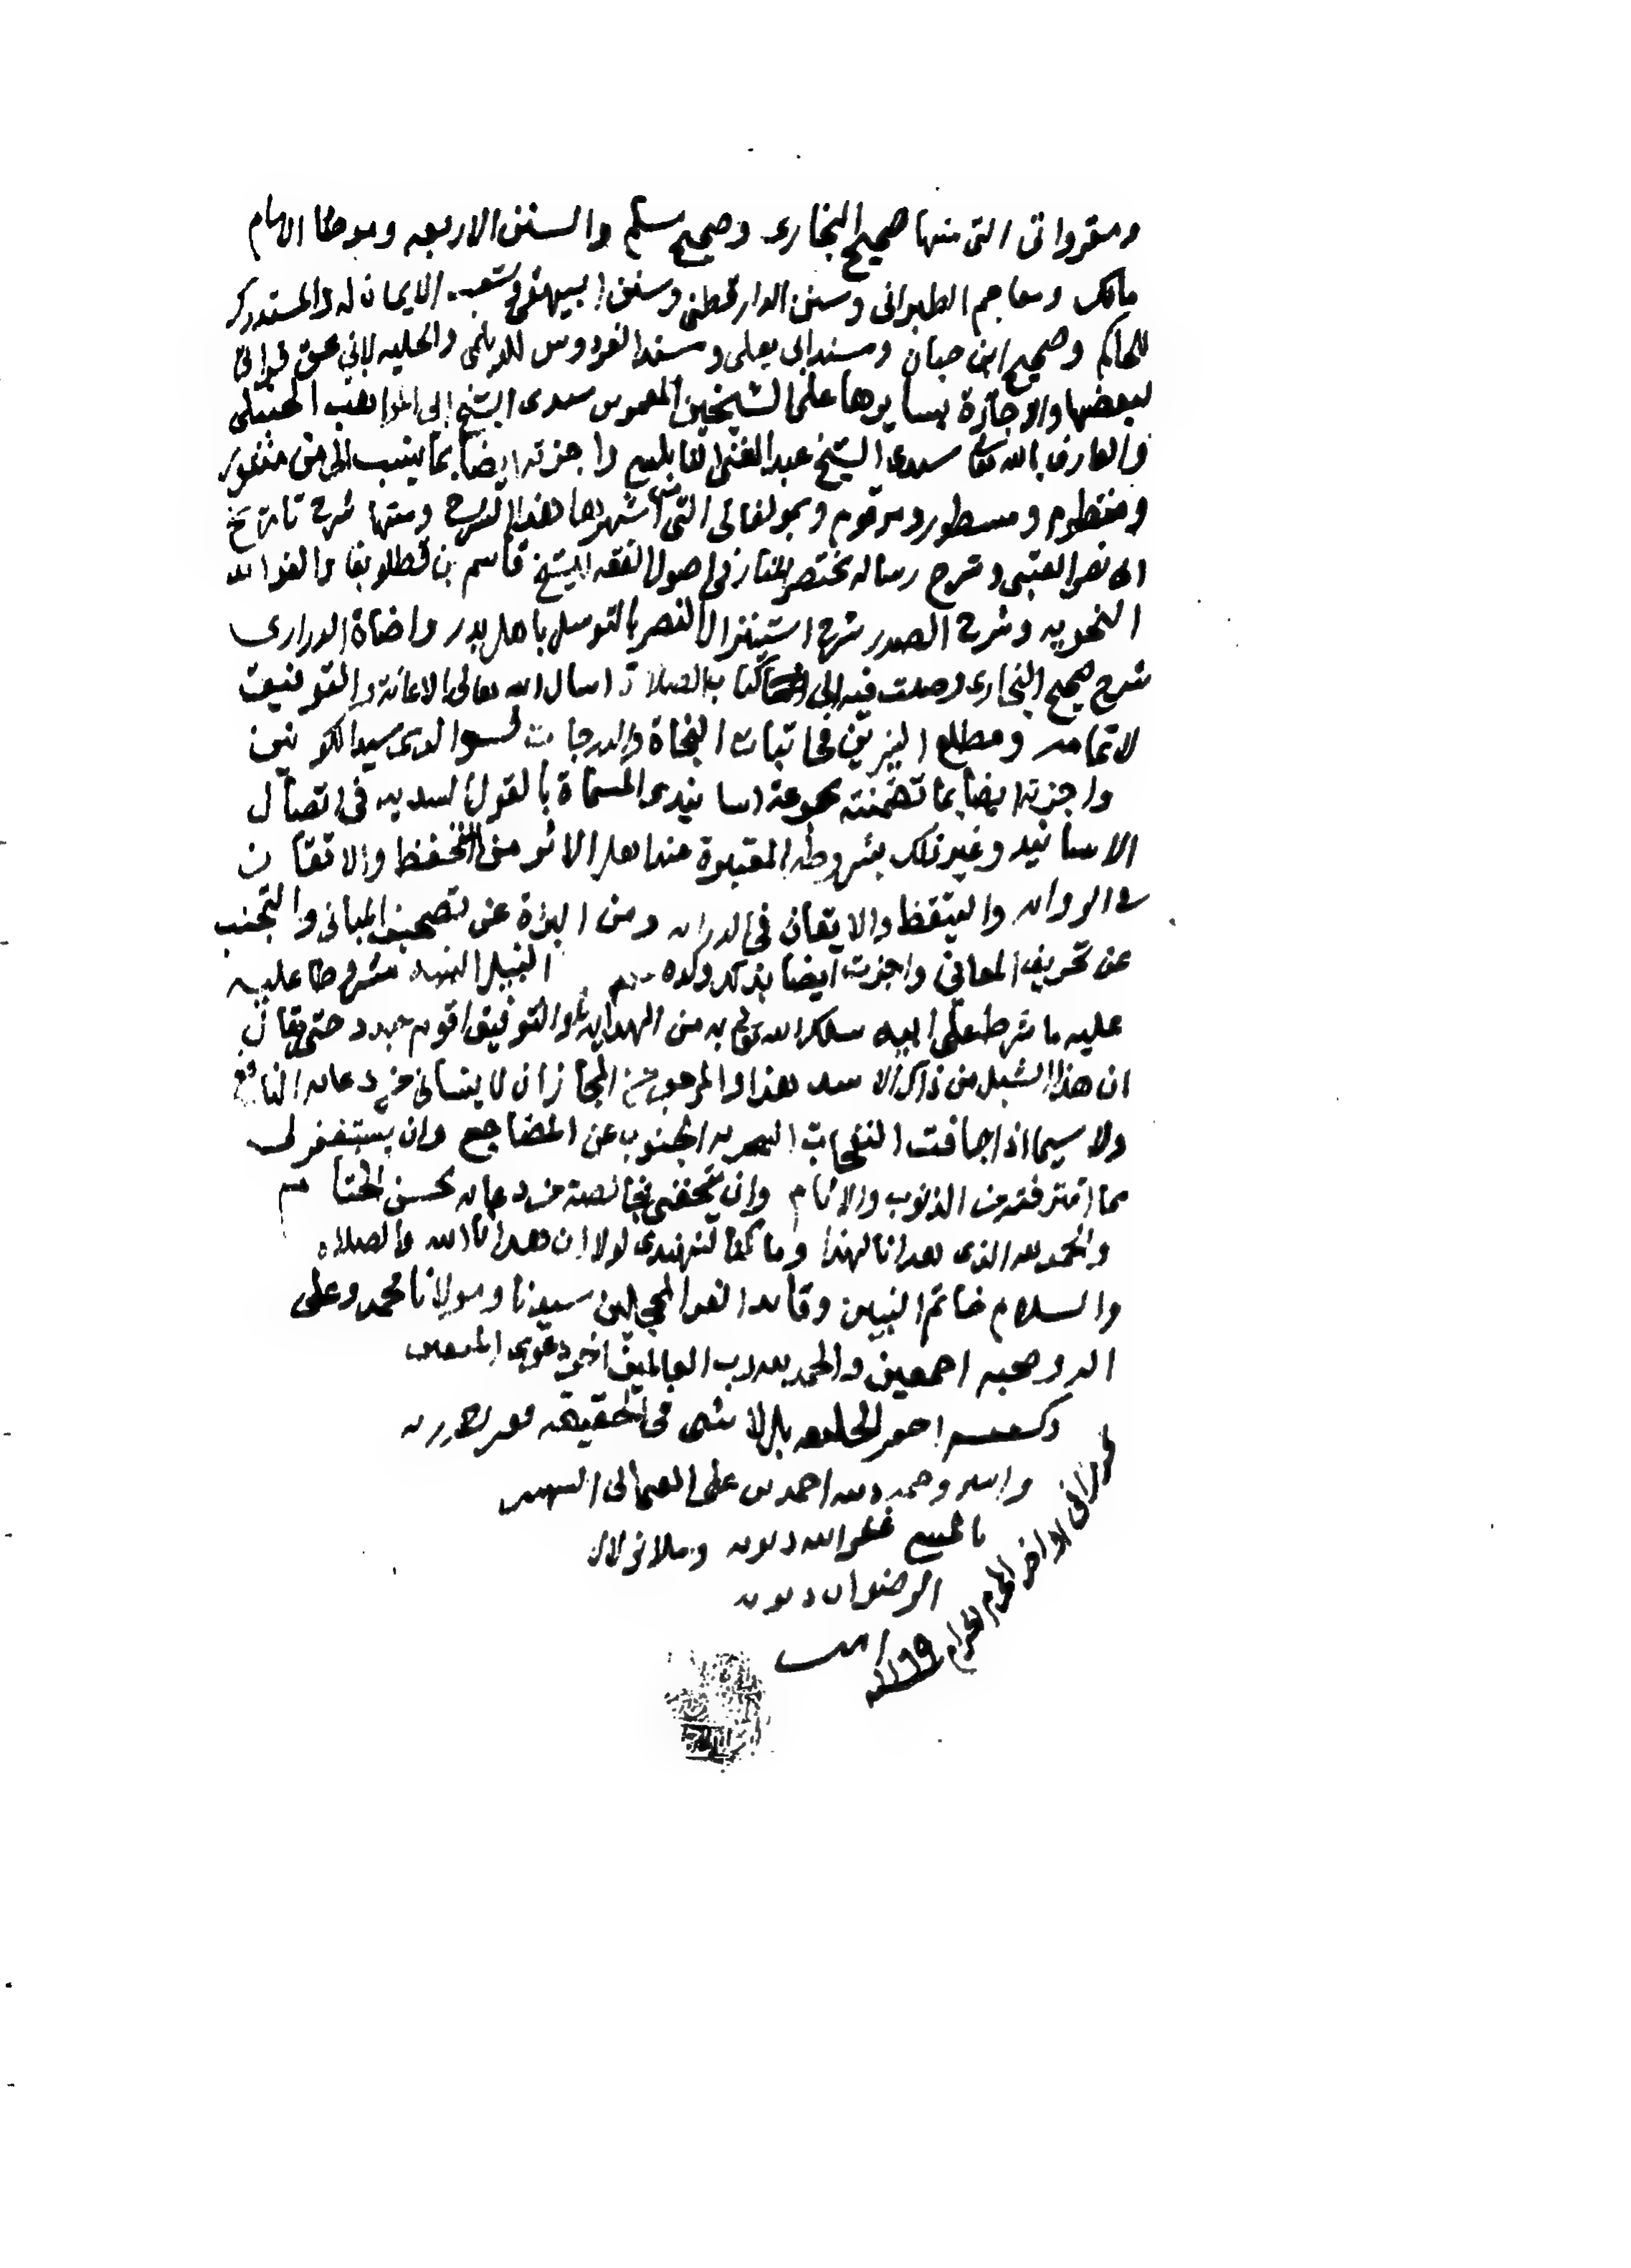 ومقرواتى التى منها صحيح البخارى وصحيح مسلم والسنن الاربعه وموطا الامام
مالك ومعاجم الطبرانى وسنن الدارقطنى وسنن البيهقى وشعب الايمان له والمستدرك
للحاكم وصحيح ابن حبان ومسند ابى يعلى ومسند الفردوس للديلمى والحليه لابي عن قراتى
لبعضها والاجازة بسايرها على الشيخين سيدى الشيخ ابى المواهب الحنبلى
والعارف بالله تعالى سيدى الشيخ عبد الغنى النابلسي واجزته ايضا بما ينسب الى من منثور
ومنظوم ومسطور ومرقوم وبمولفاتى التى منها اشهرها هذا الشرح ومنها شرح تاريخ
ابى نصر العتبى وشرح رساله مختصر المنار فى اصول الفقه للشيخ قاسم بن قطلوبغا والفوائد
النحويه وشرح الصدر شرح استنزال النصر بالتوسل باهل بدر واضاة الدرارى
شرح صحيح البخارى وصلت فيه الى كتاب الصلاة اسال الله تعالى الاعانة والتوفيق
لاتمامه ومطلع النيرين فى اثبات النجاة والدرجات لوالدى سيد الكونين
واجزته ايضا بما تضمنته مجموعة اسانيدى المسماة بالقول السديد فى اتصال
الاسانيد وغير ذلك بشروطه المعتبرة عند اهل الاثر من التحفظ والاتقان
فى الرواية والتيقظ والايقان فى الدراية ومن البراة عن تصحيف المبانى والتجنب
عن تحريف المعانى واجزت ايضا بذلك ولده النبيل النبيه مشروطا عليه
عليه ما شرط على ابيه سلك الله تعالى به من الهداية والتوفيق اقوم جدد حتى يقال
ان هذا الشبل من ذاك الاسد هذا والمرجو من المجاز ان لا ينسانى من دعائه النافع
ولا سيما اذا جافت النفحات السحريه الجنوب عن المضاجع وان يستغفر لى
مما اقترفته من الذنوب والاثام وان يتحفنى بخالصة من دعائه بحسن الختام
والحمد لله الذى هدانا لهذا وما كنا لنهتدى لولا ان هدانا الله والصلاه
والسلام خاتم النبيين وقائد الغر المحجلين سيدنا ومولانا محمد وعلى
اله وصحبه اجمعين والحمد لله رب العالمين اخر دعوى
احقر الخليقه بل لا شى فى الحقيقه فقير
واسير احمد بن على العثمانى الشهير
بالمنينى غفر الله ذنوبه وملا بزلال
الرضوان ذنوبه
امين
فى اواخر المحرم الحرام ١١٦٩